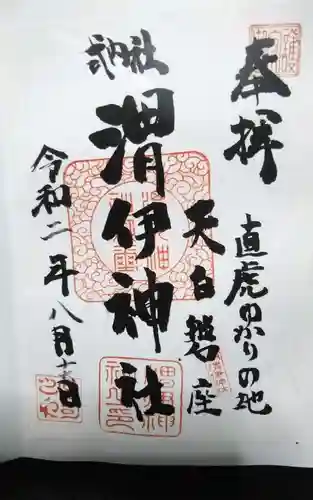 奉拝
直虎ゆかりの地
天白磐座
式内社
渭伊神社
令和二年八月十三日